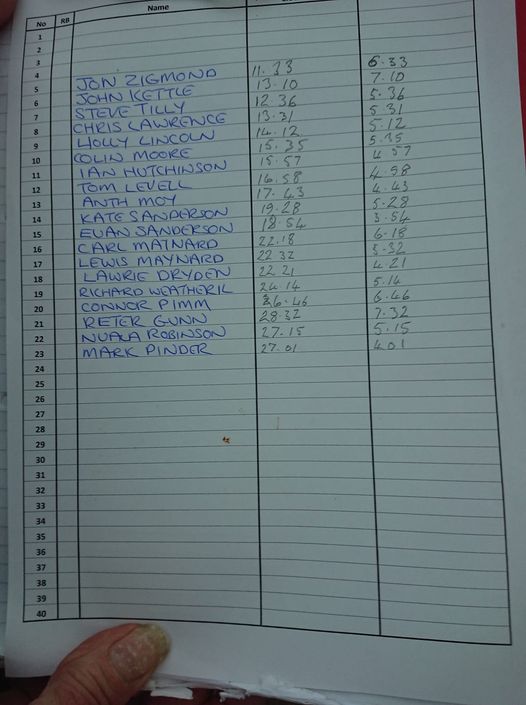 No RB Name
1
2
3
4
5 JON ZIGMOND 11.33 6.33
6 JOHN KETTLE 13.10 7.10
7 STEVE TILLY 12.36 5.36
8 CHRIS LAWRENCE 13.31 5.31
9 HOLLY LINCOLN 14.12 5.12
10 COLIN MOORE 15.35 5.35
11 IAN HUTCHINSON 15.57 4.57
12 TOM LEVELL 16.58 4.58
13 ANTH MOY 17.43 4.43
14 KATE SANDERSON 19.28 5.28
15 EUAN SANDERSON 18.54 3.54
16 CARL MAYNARD 22.18 6.18
17 LEWIS MAYNARD 22 32 5.32
18 LAWRIE DRYDEN 22 21 4.21
19 RICHARD WEATHERIL 24.14 5.14
20 CONNOR PIMM 26.46 6.46
21 PETER GUNN 28.32 7.32
22 NUALA ROBINSON 27.15 5.15
23 MARK PINDER 27.01 4 01
24
25
26
27
28
29
30
31
32
33
34
35
36
37
38
39
40